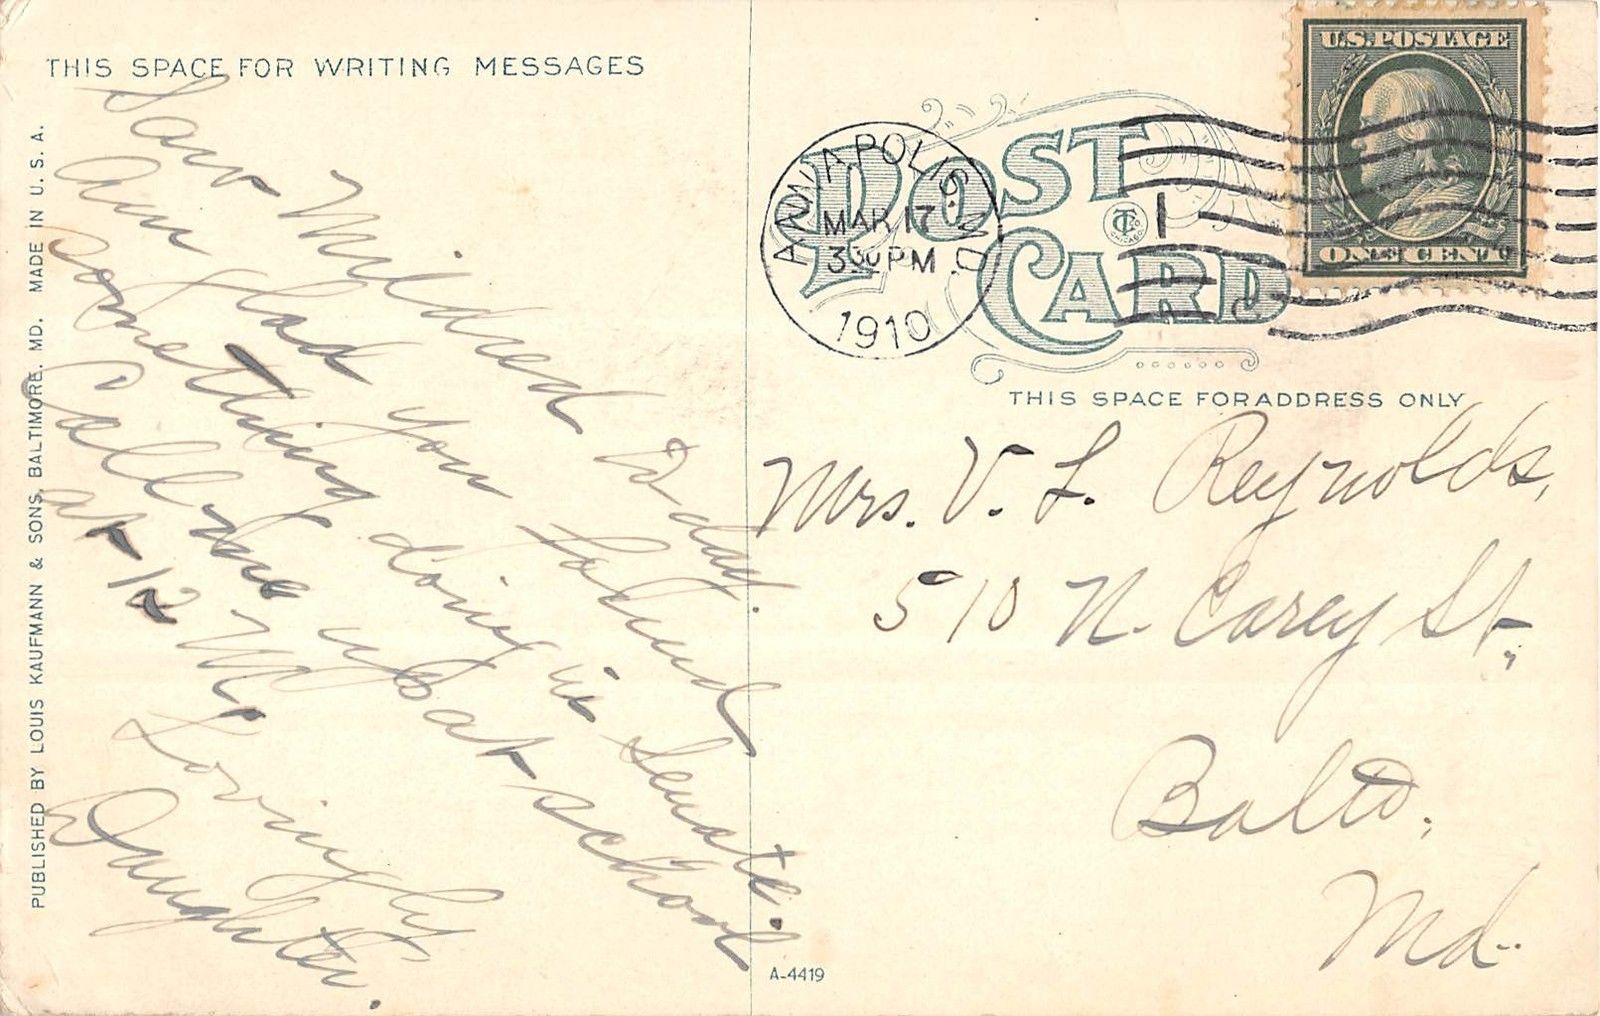 THIS SPACE FOR WRITING MESSAGES
Saw Mildred to day.
Am glad you found
something doing in Senate.
Call me up at school
at 12 M.
Lovingly
Daughter.
PUBLISHED BY LOUIS KAUFMANN & SONS, BALTIMORE, MD. MADE IN U. S. A.
POST CARD
ANNAPOLIS. MD.
MAR 17
3 30 PM
1910
1
U.S. POSTAGE
ONE CENT
THIS SPACE FOR ADDRESS ONLY
Mrs. V. L. Reynolds,
510 N. Carey St.,
Balto.
Md.
A-4419